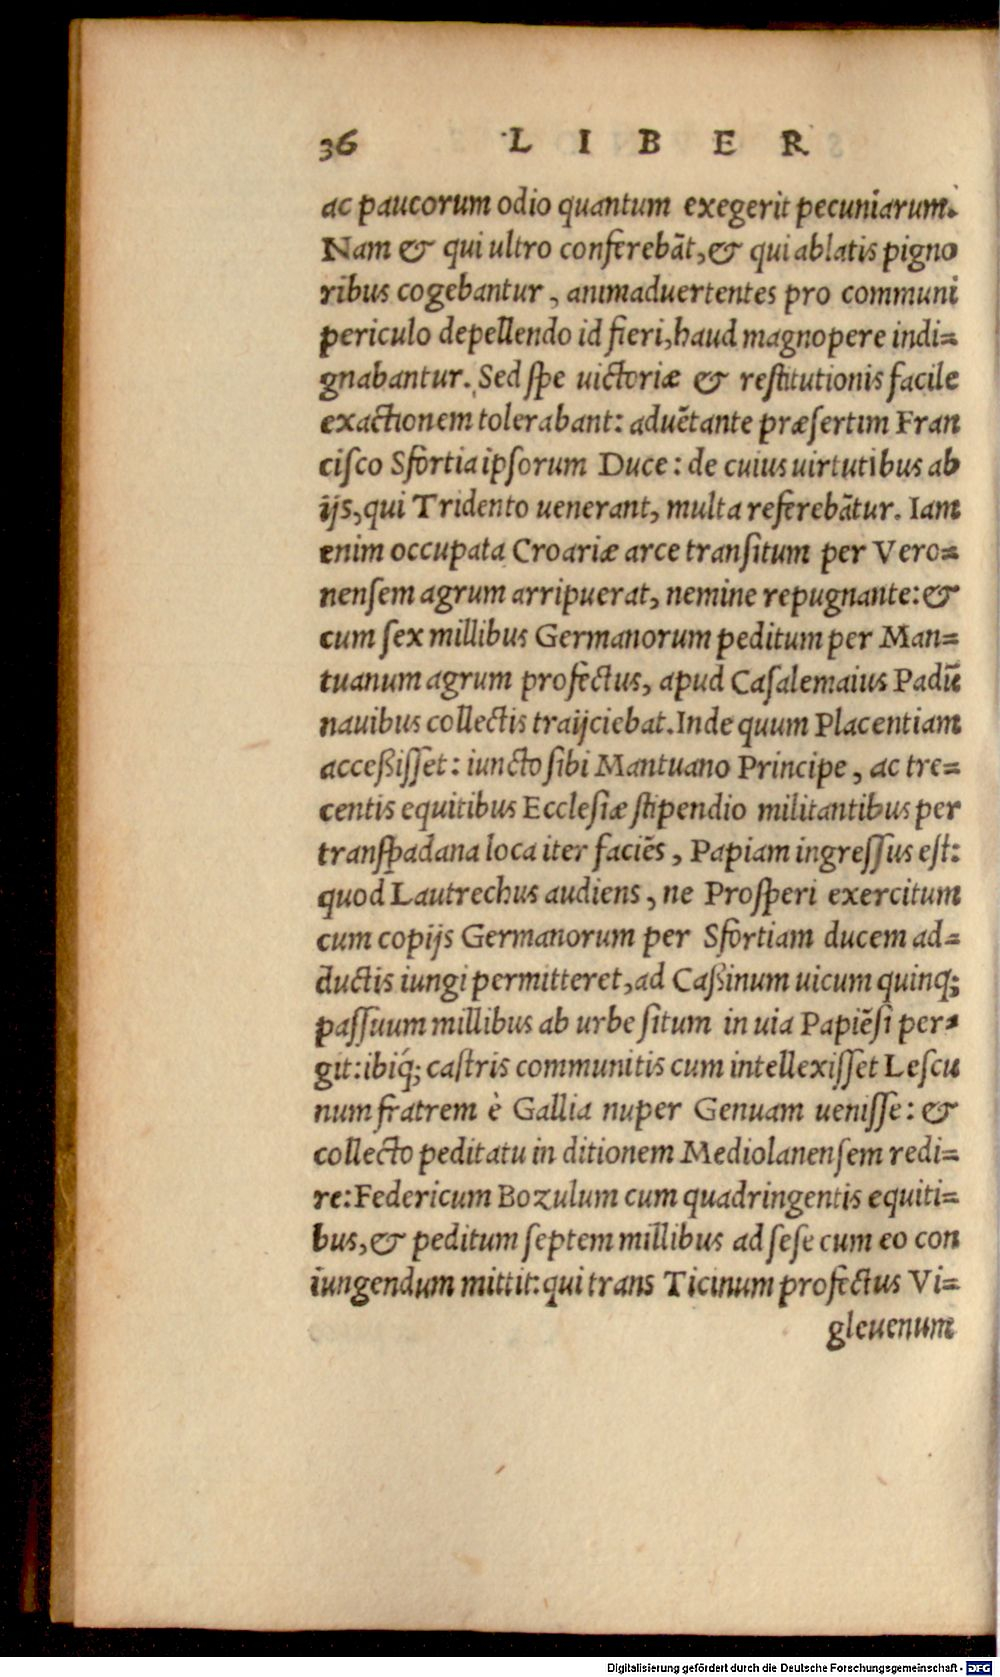 36 LIBER
ac paucorum odio quantum exegerit pecuniarum.
Nam & qui ultro conferebāt, & qui ablatis pigno
ribus cogebantur, animaduertentes pro communi
periculo depellendo id fieri, haud magnopere indi=
gnabantur. Sed ſpe uictoriæ & reſtitutionis facile
exactionem tolerabant: aduētante præſertim Fran
ciſco Sfortia ipſorum Duce: de cuius uirtutibus ab
ijs, qui Tridento uenerant, multa referebātur. Iam
enim occupata Croariæ arce tranſitum per Vero=
nenſem agrum arripuerat, nemine repugnante: &
cum ſex millibus Germanorum peditum per Man=
tuanum agrum profectus, apud Caſalemaius Padū
nauibus collectis traijciebat. Inde quum Placentiam
acceßiſſet: iuncto ſibi Mantuano Principe, ac tre=
centis equitibus Eccleſiæ ſtipendio militantibus per
tranſpadana loca iter faciēs, Papiam ingreſſus eſt:
quod Lautrechus audiens, ne Proſperi exercitum
cum copijs Germanorum per Sfortiam ducem ad=
ductis iungi permitteret, ad Caßinum uicum quinq;
paſſuum millibus ab urbe ſitum in uia Papiēſi per=
git: ibiq́; caſtris communitis cum intellexiſſet Leſcu
num fratrem è Gallia nuper Genuam ueniſſe: &
collecto peditatu in ditionem Mediolanenſem redi=
re: Federicum Bozulum cum quadringentis equiti=
bus, & peditum ſeptem millibus ad ſeſe cum eo con
iungendum mittit: qui trans Ticinum profectus Vi=
gleuenum
Digitalisierung gefördert durch die Deutsche Forschungsgemeinschaft - DFG